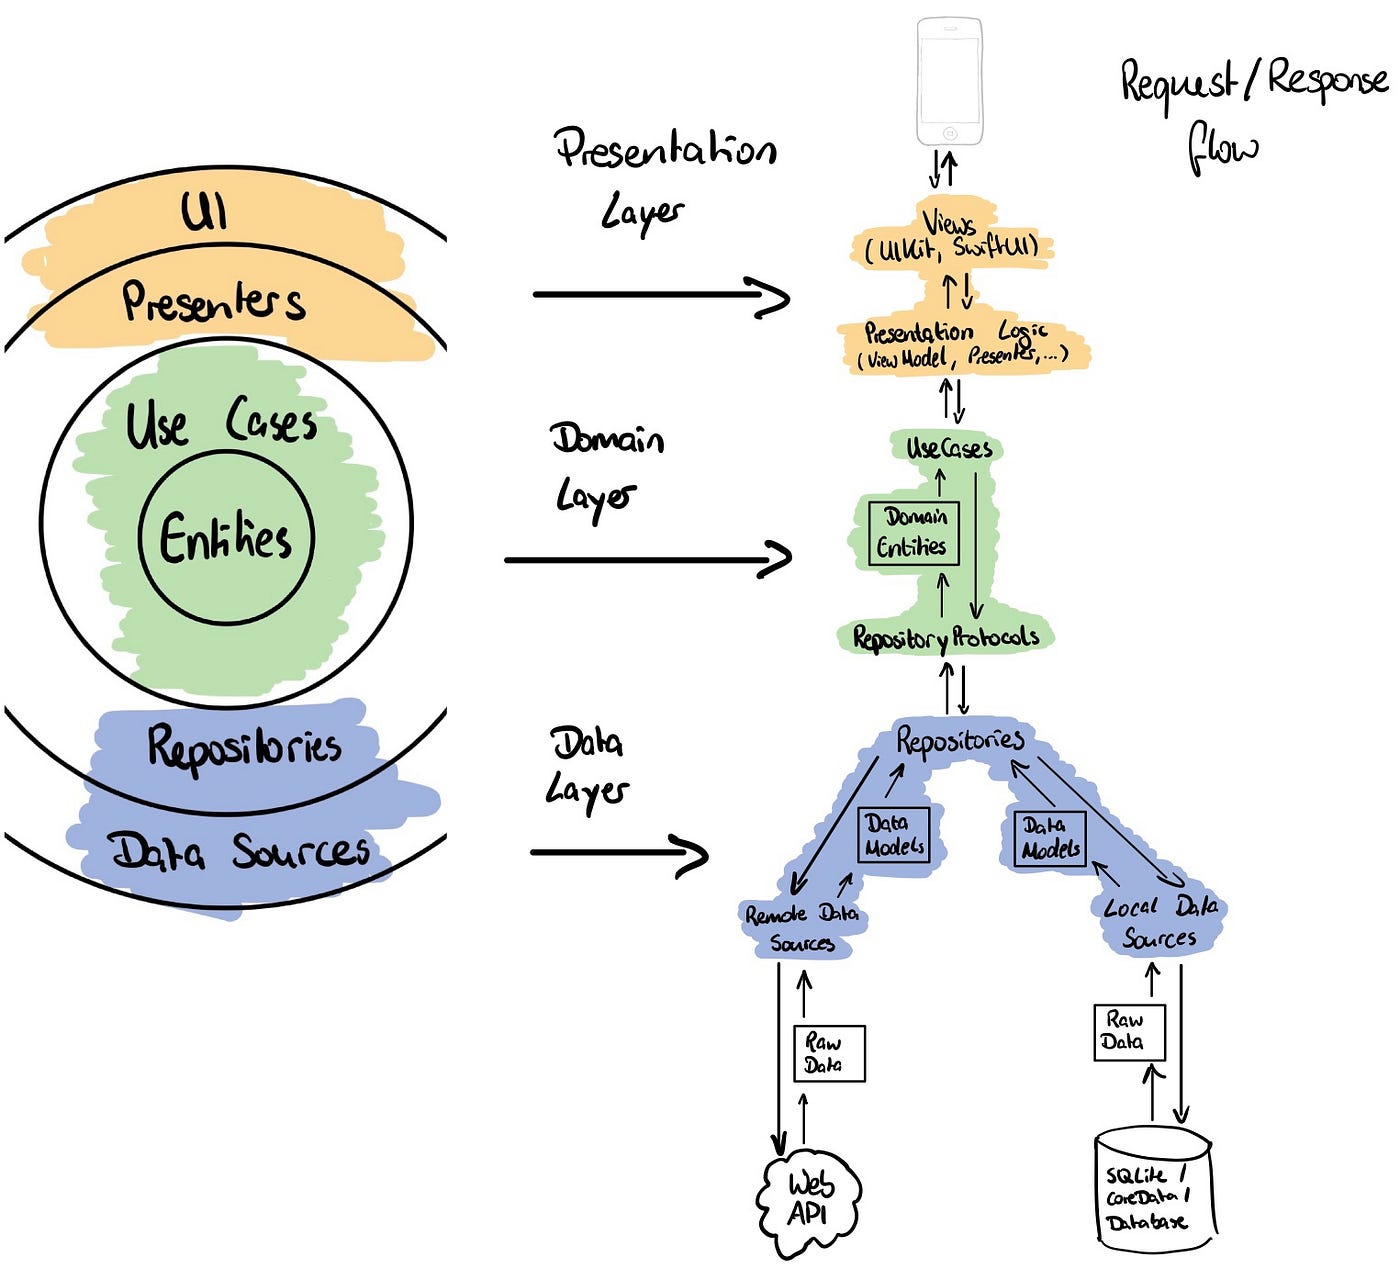 UI
Presenters
Use Cases
Entities
Repositories
Data Sources
Presentation
Layer
Domain
Layer
Data
Layer
Request/Response
flow
Views
(UIKit, SwiftUI)
Presentation Logic
(ViewModel, Presenter,...)
UseCases
Domain
Entities
Repository Protocols
Repositories
Data
Models
Data
Models
Remote Data
Sources
Local Data
Sources
Raw
Data
Raw
Data
Web
API
SQLite /
CoreData /
Database